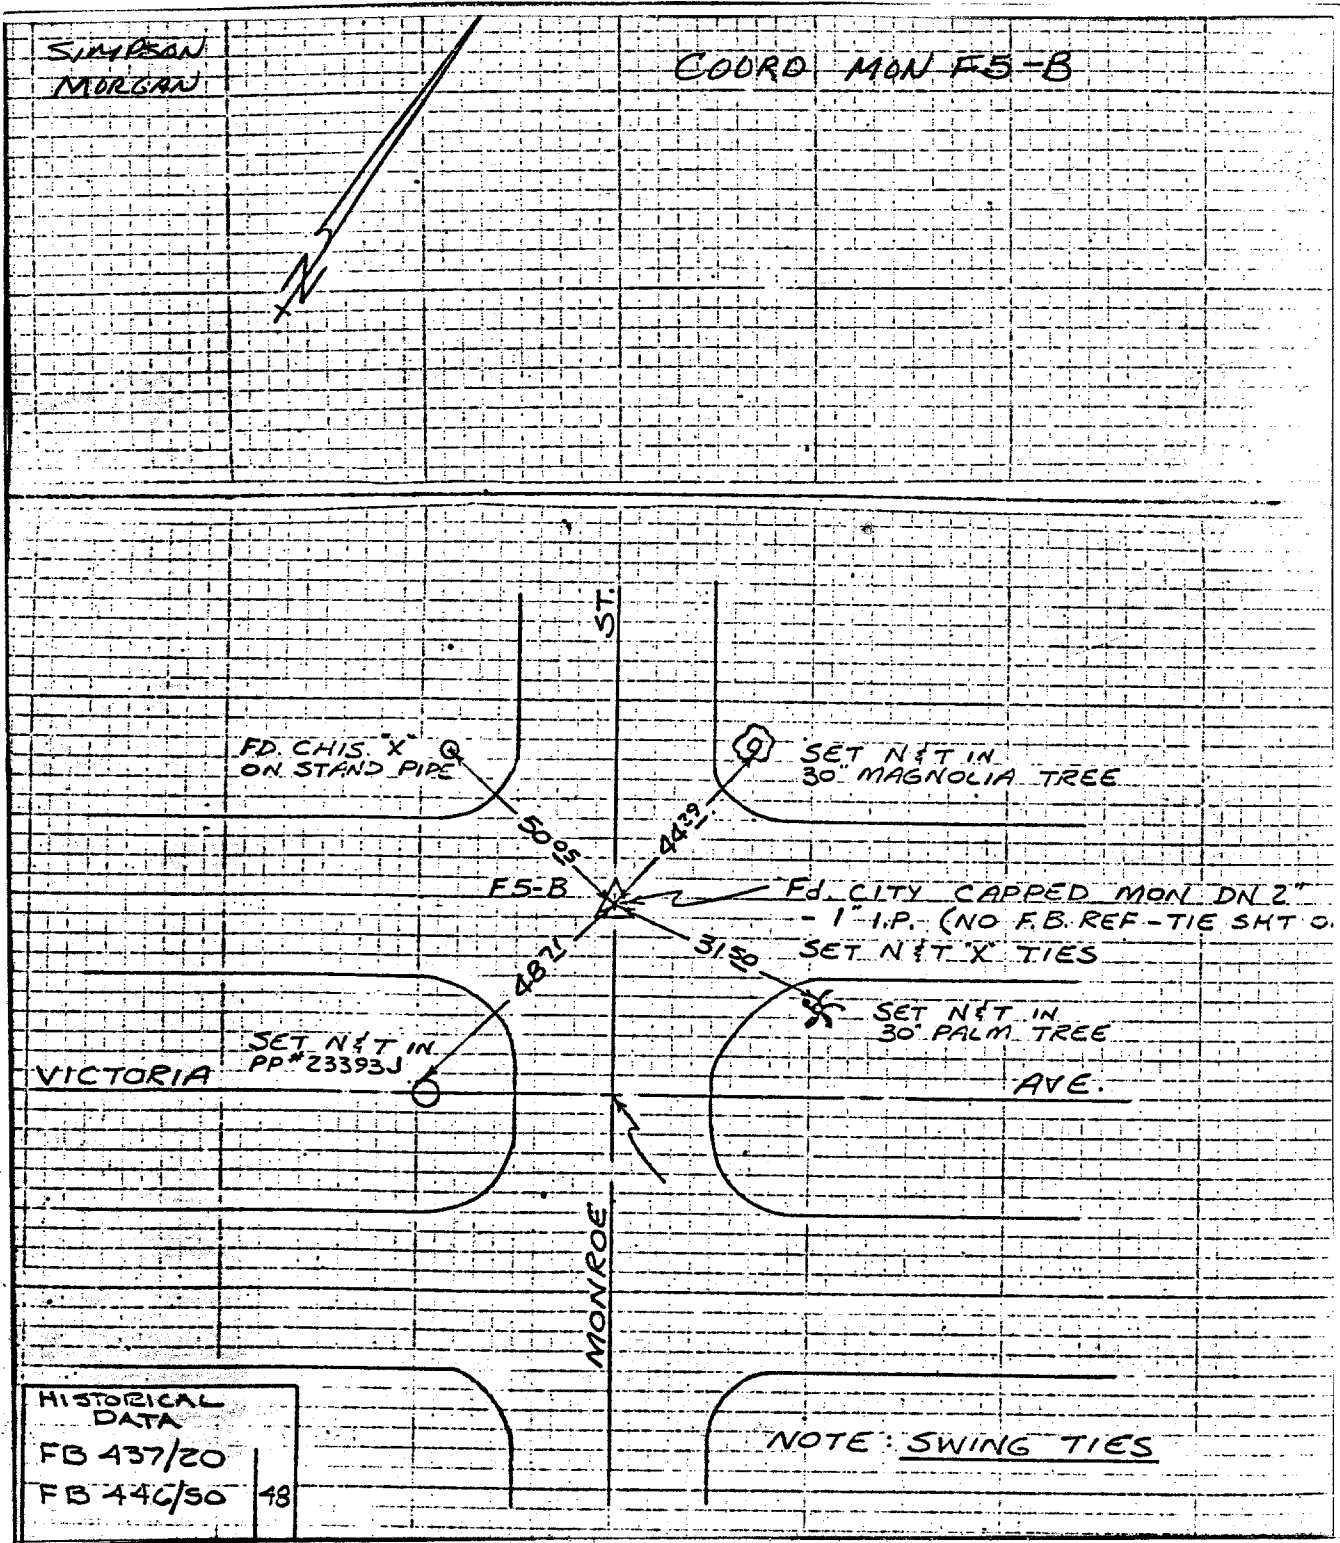 SIMPSON
MORGAN
COORD MON F5-B
N
ST.
FD. CHIS. "X"
ON STAND PIPE
SET N&T IN
30" MAGNOLIA TREE
50.05
44.39
F5-B
Fd. CITY CAPPED MON DN 2"
- 1" I.P. (NO F.B. REF-TIE SHT O
SET N&T "X" TIES
48.71
31.50
SET N&T IN
PP#23393J
SET N&T IN
30" PALM TREE
VICTORIA
AVE.
MONROE
HISTORICAL
DATA
FB 437/20
FB 446/50
48
NOTE: SWING TIES